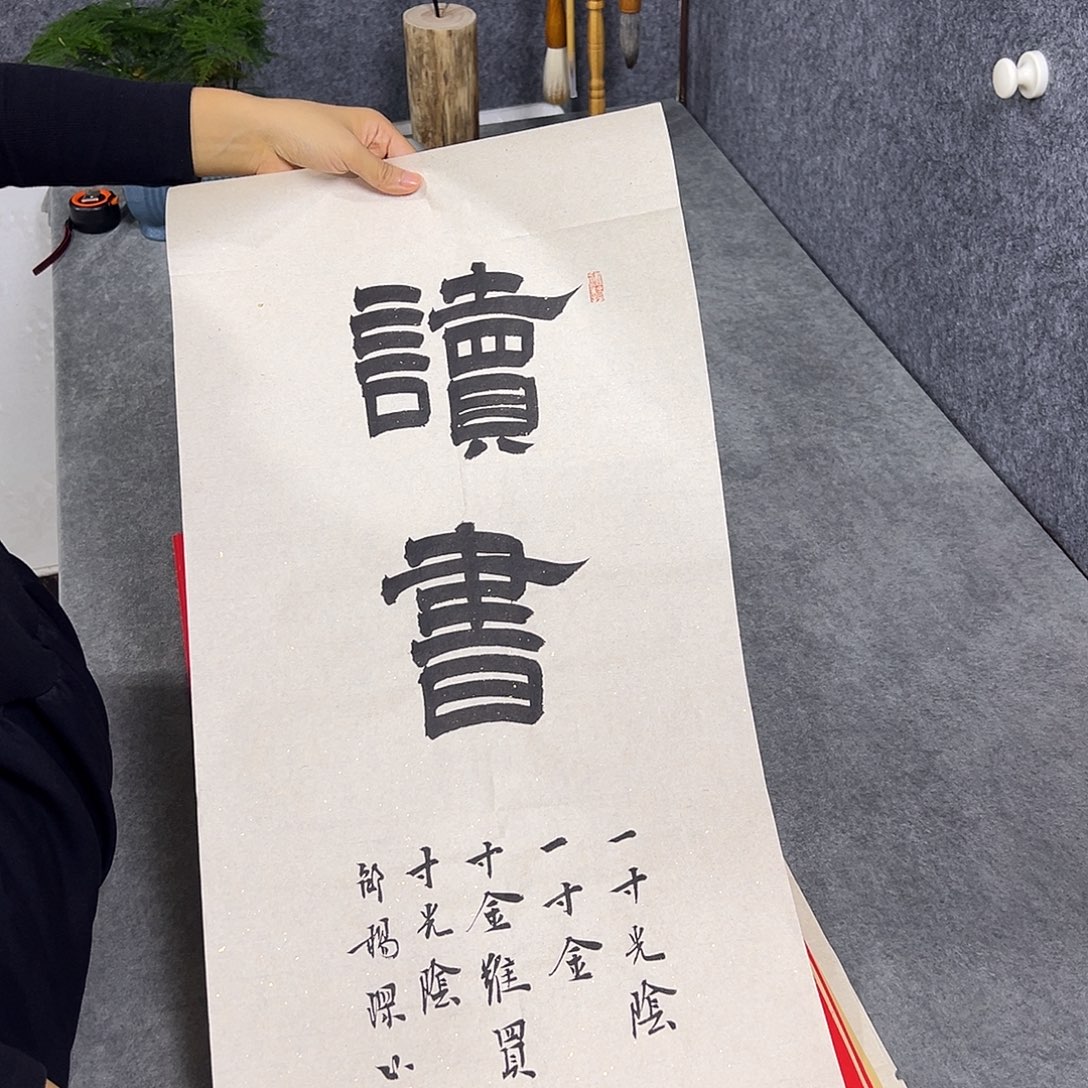 讀書
一寸光陰
一寸金
寸金難買
寸光陰